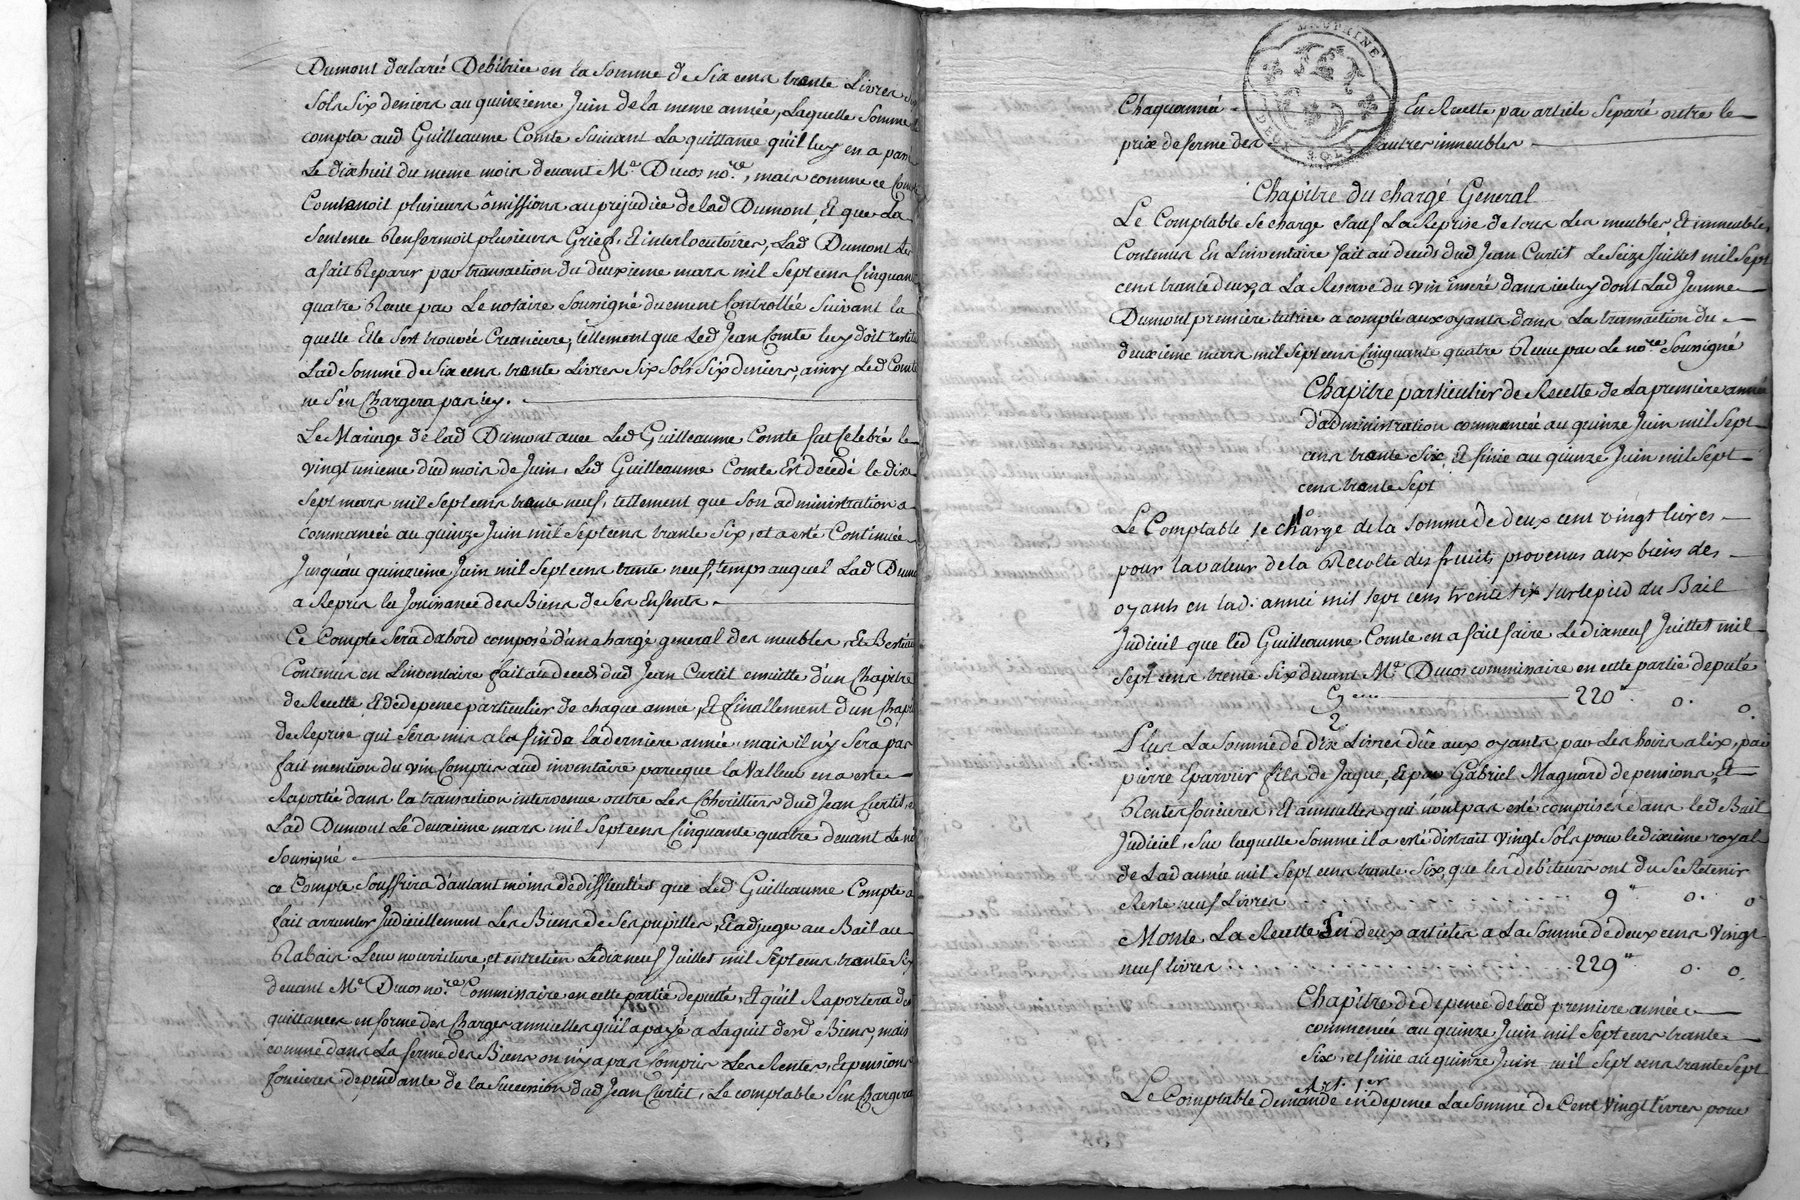 Dumont declareé Debitrice en la Somme de Six cens trante Livres Six
Sols Six deniers au quinzieme Juin de la meme année, Laquelle Somme
compta aud Guilleaume Comte Suivant La quittance quil luy en a passé
Le dixhuit du meme mois devant Me Ducos nore, mais comme ce Compte
Contenoit plusieurs ômissions au prejudice de lad Dumont, Et que La
Sentence Renfermoit plusieurs Griefs, Et interlocutoires, Lad Dumont Les
a fait Reparer par transaction du deuxieme mars mil Sept cens Cinquante
quatre Receue par Le notaire Soussigné duement Controllée Suivant la
quelle Elle Sest trouvée Creanciere, tellement que Led Jean Comte luy doit restitu
Lad Somme de Six cens trante Livres Six Sols Six deniers, ainsy Led Comte
ne S'en Chargera pas icy.
Le Mariage de lad Dumont avec Led Guilleaume Comte fut Celebré le
vingt unieme dud mois de Juin. Led Guilleaume Comte Est decedé le dix
Sept mars mil Sept cens trante neuf, tellement que Son administration a
commancée au quinze Juin mil Sept cens trante Six, et a esté Continuée
Jusqu'au quinzieme Juin mil Sept cens trante neuf, temps auquel Lad Dumont
a Repris la Jouissance des Biens de Ses Enfents
Ce Compte Sera d'abord composé d'un chargé general des meubles, Et Bestiaux
Contenus en L'inventaire fait au deceds dud Jean Curtil ensuitte d'un Chapitre
de Recette, Et de depence particulier de chaque année, Et finallement d'un Chapitre
de Reprise qui Sera mis a la fin de la derniere année, mais il n'y Sera pas
fait mention du vin Compris aud inventaire parceque la Valleur en a esté
Raportée dans la transaction intervenue entre Les Coheritiers dud Jean Curtil, et
Lad Dumont Le deuxieme mars mil Sept cens Cinquante quatre devant Le nore
Soussigné
ce Compte Souffrira d'autant moins de difficultés que Led Guilleaume Compte a
fait arrenter Judiciellement Les Biens de Ses pupilles, Et adjuger au Bail au
Rabais Leur nourriture, et entretien Le dixneuf Juillet mil Sept cens trante Six
devant Me Ducos nore Commissaire en cette partie deputé, Et qu'il Raportera des
quittances en forme des Charges annuelles qu'il a payé a Laquit desd Biens, mais
comme dans La ferme des Biens on n'y a pas Compris Les Rentes, Et pensions
foncieres dependante de la Succession dud Jean Curtil, Le comptable S'en Chargera
Chaqu'année En Recette par article Separé outre le
prix de ferme des autres immeubles
Chapitre du chargé General
Le Comptable Se charge Sauf La Reprise de tous Les meubles, Et immeubles
Contenus En L'inventaire fait au deceds dud Jean Curtil Le Seize Juillet mil Sept
cens trante deux, a La Reserve du vin inseré dans iceluy dont Lad Jeanne
Dumont premiere tutrice a compté aux oyants dans La transaction du
deuxieme mars mil Sept cens Cinquante quatre Receue par Le nore Soussigné
Chapitre particulier de Recette de La premiere année
d'administration commancée au quinze Juin mil Sept
cens trante Six, Et finie au quinze Juin mil Sept
cens trante Sept
1o
Le Comptable se charge de la Somme de deux cent vingt livres
pour la valeur de la Recolte des fruits provenus aux biens des
oyants en lad. année mil sept cens trente six sur le pied du Bail
Judiciel que led Guilleaume Comte en a fait faire Le dixneuf Juillet mil
Sept cens trente Six devant Me Ducos commissaire en cette partie deputé
Cy 220lt o. o.
2
Plus La Somme de dix Livres düe aux oyants par Les hoirs alix, par
pierre Eparvier fils de Jaque, Et par Gabriel Magnard de pensions, Et
Rentes foncieres, Et annuelles qui n'ont pas esté comprises dans led Bail
Judiciel, Sur laquelle Somme il a esté distrait vingt Sols pour le dixieme royal
de Lad année mil Sept cens trante Six, que les debiteurs ont du Se Retenir
Reste neuf Livres 9lt o. o
Monte La Recette En deux articles a La Somme de deux cens vingt
neuf livres 229lt o. o.
Chapitre de depence de lad premiere année
commencée au quinze Juin mil Sept cens trante
Six, et finie au quinze Juin mil Sept cens trante Sept
Art. 1er
Le Comptable demande en depence La Somme de Cent vingt livres pour
DEUX SOLS